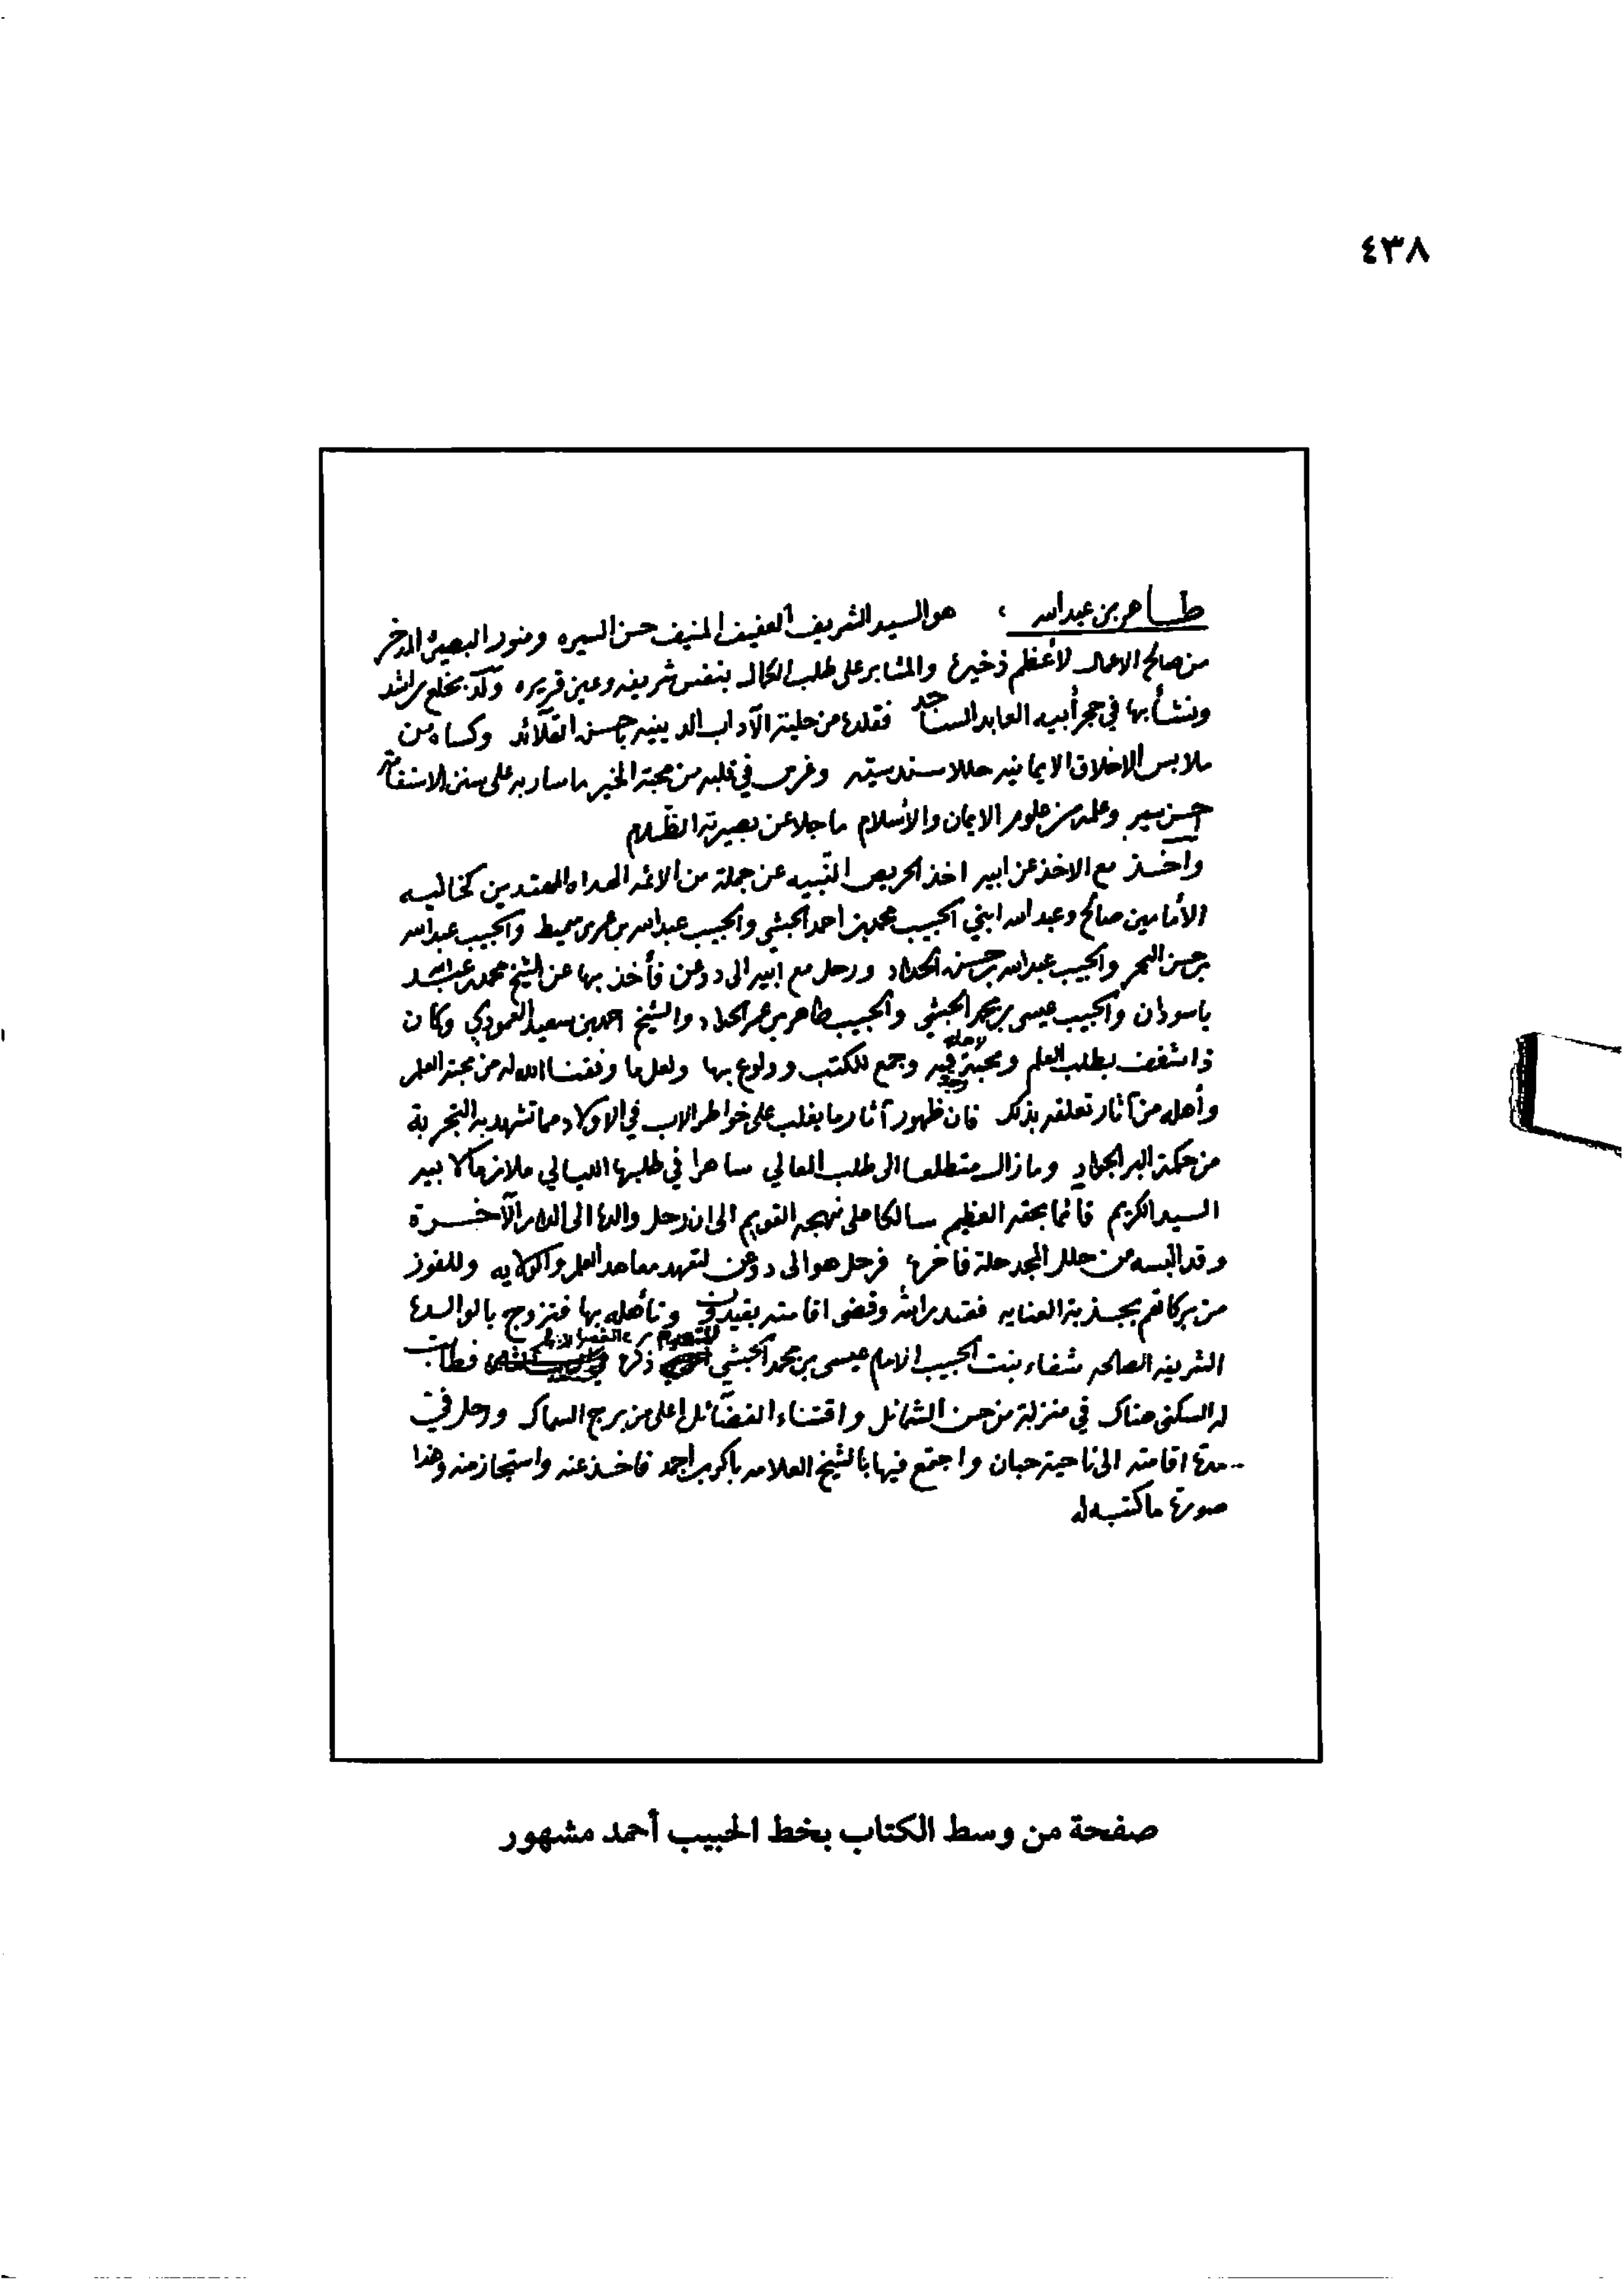 ٤٣٨
طاهر بن عبدالله ، هو السيد الشريف العفيف المنيف حسن السيره ومنور البصيره المدخر
من صالح الاعمال لأعظم ذخيرة والمثابر على طلب الكمال بنفس شريفه وعين قريره ولد بمخلع راشد
ونشأ بها في حجر أبيه العابد الساجد فقلده من حلية الآداب الدينيه بأحسن القلائد وكساه من
ملابس الاخلاق الايمانيه حللا سندسيته وغرس في قلبه من محبة الخير ما سار به على سنن الاستقامة
أحسن سير وعلمه من علوم الايمان والأسلام ما جلا عن بصيرته الظلام
وأخذ مع الاخذ عن ابيه اخذ الحريص النبيه عن جملة من الائمه الهداه المهتدين كخاليه
الأمامين صالح وعبدالله ابني الحبيب محمد بن احمد الحبشي والحبيب عبدالله بن عمر بن سميط والحبيب عبدالله
بن حسن البحر والحبيب عبدالله بن حسن الحداد ورحل مع ابيه الى دوعن فأخذ بها عن الشيخ محمد بن عبدالله
باسودان والحبيب عيسى بن محمد الحبشي والحبيب طاهر بن عمر الحداد والشيخ احمد بن سعيد العمودي وكان
ذا شغف بطلب العلم ومحبة فيه لاهله وجمع للكتب وولوع بها ولعل ما وفقنا الله له من محبة العلم
وأهله من آثار تعلقه بذلك فان ظهور آثار ما يغلب على خواطر الاب في الاولاد مما تشهد به التجربة
من حكمة البر الجواد وما زال متطلعا الى طلب المعالي ساهرا في طلبها الليالي ملازما لابيه
السيد الكريم قائما بحقه العظيم سالكا على نهجه القويم الى ان رحل والده الى الدار الآخرة
وقد البسه من حلل المجد حلة فاخرة فرحل هو الى دوعن لتعهد معاهد العلم والولايه وللفوز
من بركاتهم بجذبة العنايه فقصد راشد وقضى اقامته بقيدون وتأهله بها فتزوج بالوالدة
الشريفه الصالحه شفاء بنت الحبيب الامام عيسى بن محمد الحبشي المتقدم ذكره فطابت
له السكنى هناك في منزلة من حسن الشمائل واقتناء الفضائل اعلى من برج السماك ورحل في
مدة اقامته الى ناحية حبان واجتمع فيها بالشيخ العلامه باكر بن احمد فاخذ عنه واستجاز منه وهذا
صورة ما كتبه له
صفحة من وسط الكتاب بخط الحبيب أحمد مشهور